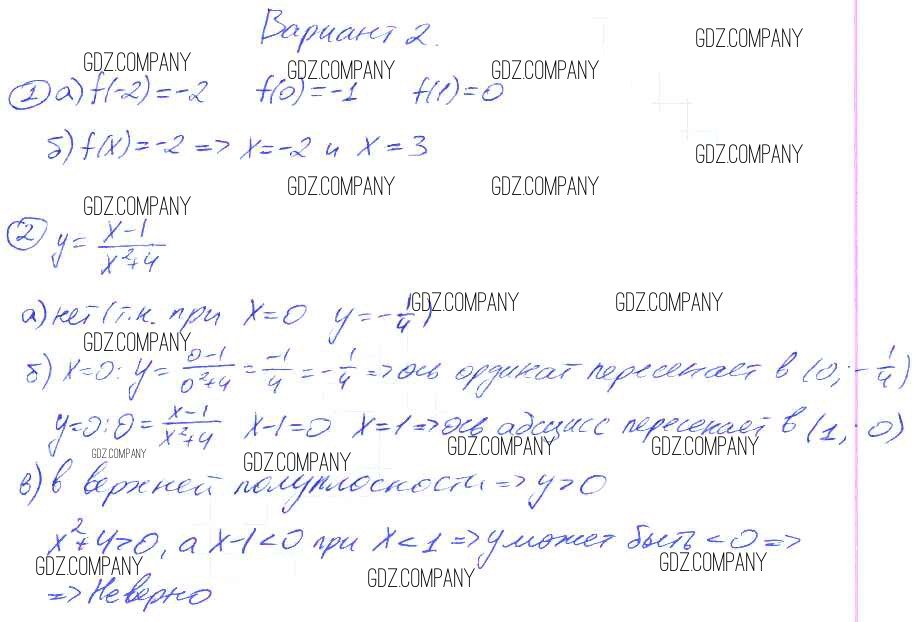 Вариант 2.
GDZ.COMPANY
GDZ.COMPANY GDZ.COMPANY GDZ.COMPANY
1 а) f(-2) = -2 f(0) = -1 f(1) = 0
б) f(x) = -2 => x = -2 и x = 3
GDZ.COMPANY
GDZ.COMPANY GDZ.COMPANY
GDZ.COMPANY
2 y = (x-1)/(x²+4)
GDZ.COMPANY GDZ.COMPANY
а) нет (т.к. при x = 0 y = -1/4)
GDZ.COMPANY
б) x=0: y = (0-1)/(0²+4) = -1/4 = -1/4 => ось ординат пересекает в (0; -1/4)
y=0: 0 = (x-1)/(x²+4) x-1=0 x=1 => ось адсцисс пересекает в (1; 0)
GDZ.COMPANY GDZ.COMPANY GDZ.COMPANY GDZ.COMPANY
в) в верхней полуплосности => y>0
x²+4>0, а x-1<0 при x<1 => y может быть <0 =>
GDZ.COMPANY GDZ.COMPANY GDZ.COMPANY
=> Неверно